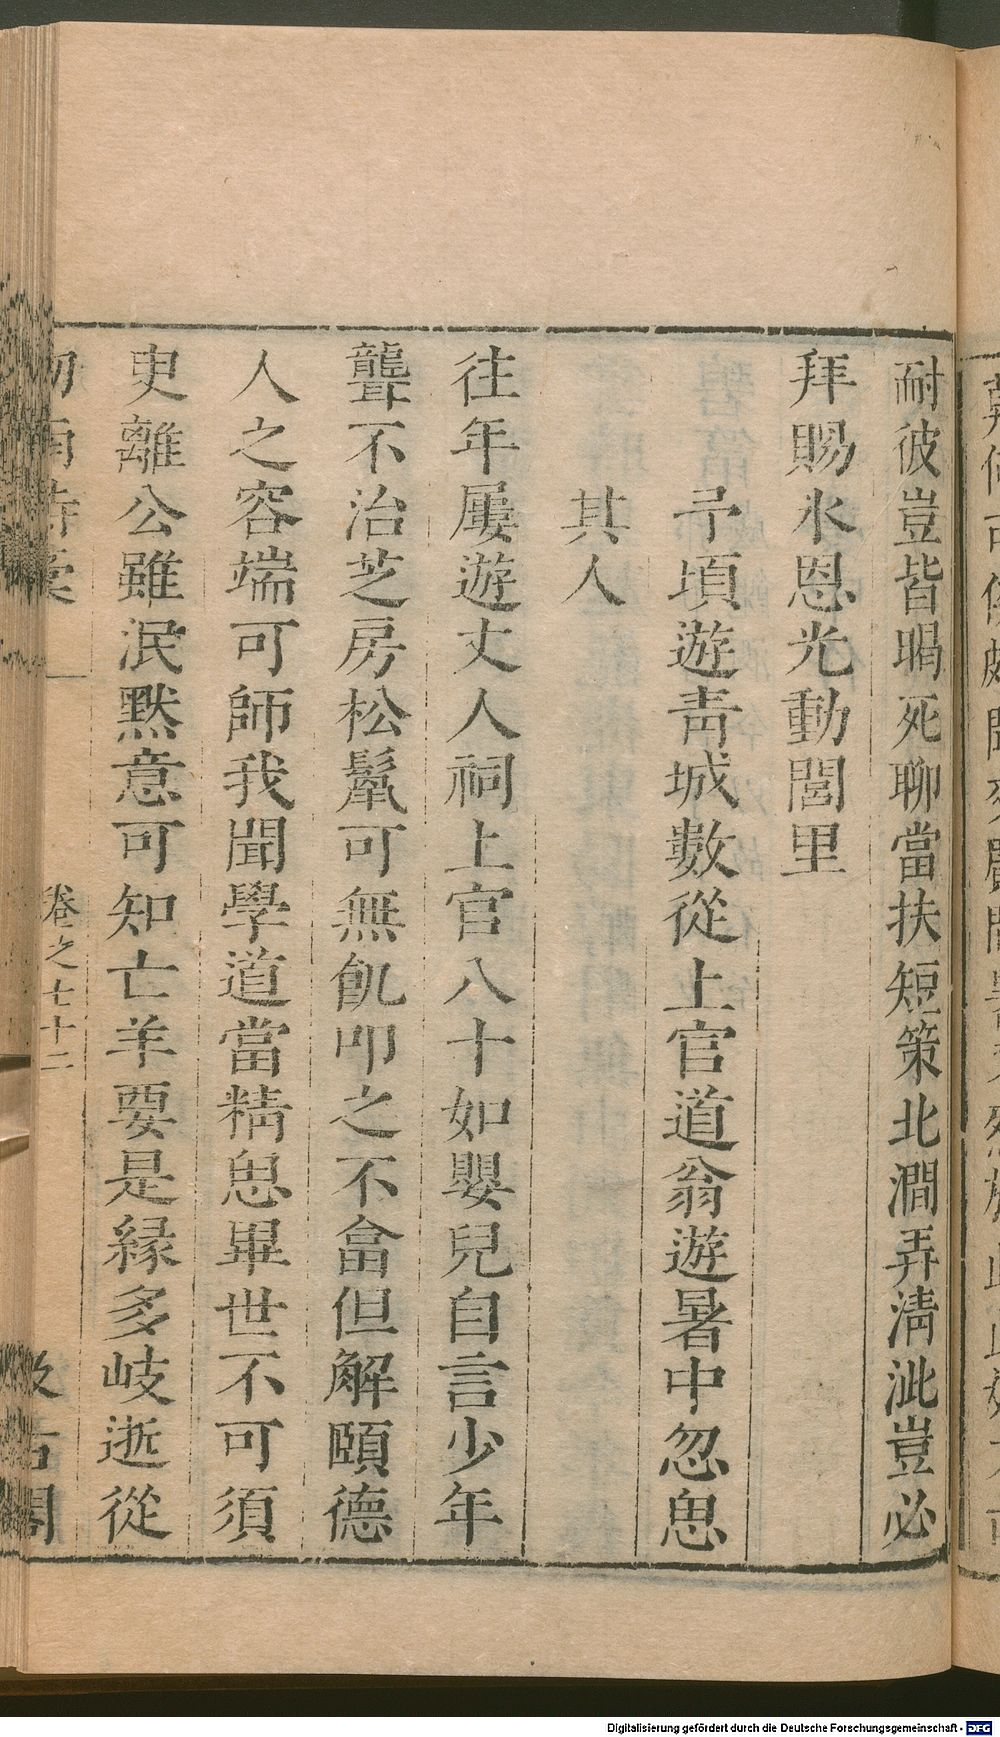 耐彼豈皆暍死聊當扶短策北澗弄淸泚豈必
拜賜氷恩光動閭里
予頃遊靑城數從上官道翁遊暑中忽思
其人
往年屢遊丈人祠上官八十如嬰兒自言少年
聾不治芝房松髦可無飢叩之不畣但解頤德
人之容端可師我聞學道當精思畢世不可須
㬰離公雖泯默意可知亡羊要是緣多岐逝從
卷之七十二
Digitalisierung gefördert durch die Deutsche Forschungsgemeinschaft - DFG